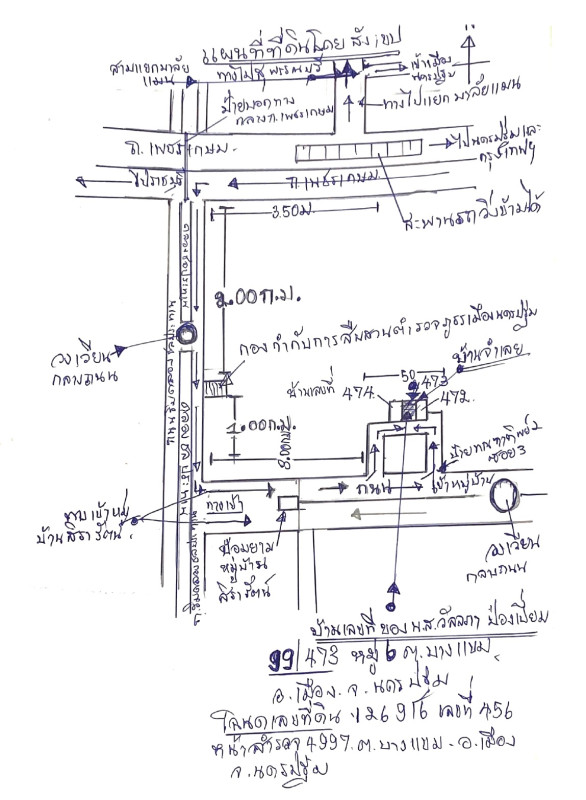 แผนที่ที่ดินโดยสังเขป
สามแยกมาลัย
แมน
ทางไปสุพรรณบุรี
เข้าเมือง
นครปฐม
ป้ายบอกทาง
กลางถ.เพชรเกษม
ทางไปแยกมาลัยแมน
ถ.เพชรเกษม.
ไปนครปฐมและ
กรุงเทพฯ
ไปราชบุรี
ถ.เพชรเกษม.
3.50ม.
สะพานรถวิ่งข้ามได้
คลองชลประทาน
2.00ก.ม.
วงเวียน
กลางถนน
กองกำกับการสืบสวนตำรวจภูธรเมืองนครปฐม
50
บ้านจำเลย
บ้านเลขที่ 474.
473
472.
1.00ก.ม.
คลองชลประทาน
8.00ม.
ซอย 3
ถนน
เข้าหมู่บ้าน
ทางเข้า
บ้านสิรารัตน์.
ป้อมยาม
หมู่บ้าน
สิรารัตน์
วงเวียน
กลางถนน
บ้านเลขที่ ของ น.ส.วัลลภา ป้องเปี่ยม
99/473 หมู่ 6 ต.บางแขม.
อ.เมือง. จ.นครปฐม
โฉนดเลขที่ดิน 126916 เลขที่ 456
หน้าสำรวจ 4997. ต.บางแขม. อ.เมือง
จ.นครปฐม